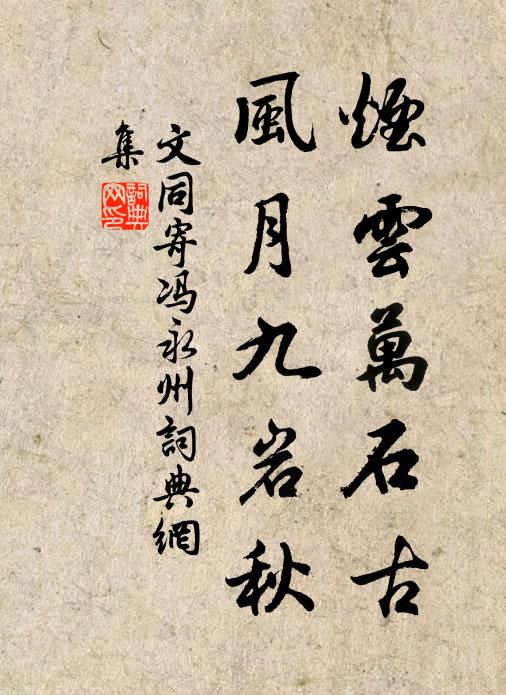 煙雲萬石古
風月九岩秋
文同寄冯永州詞典網
集
詞典
网印